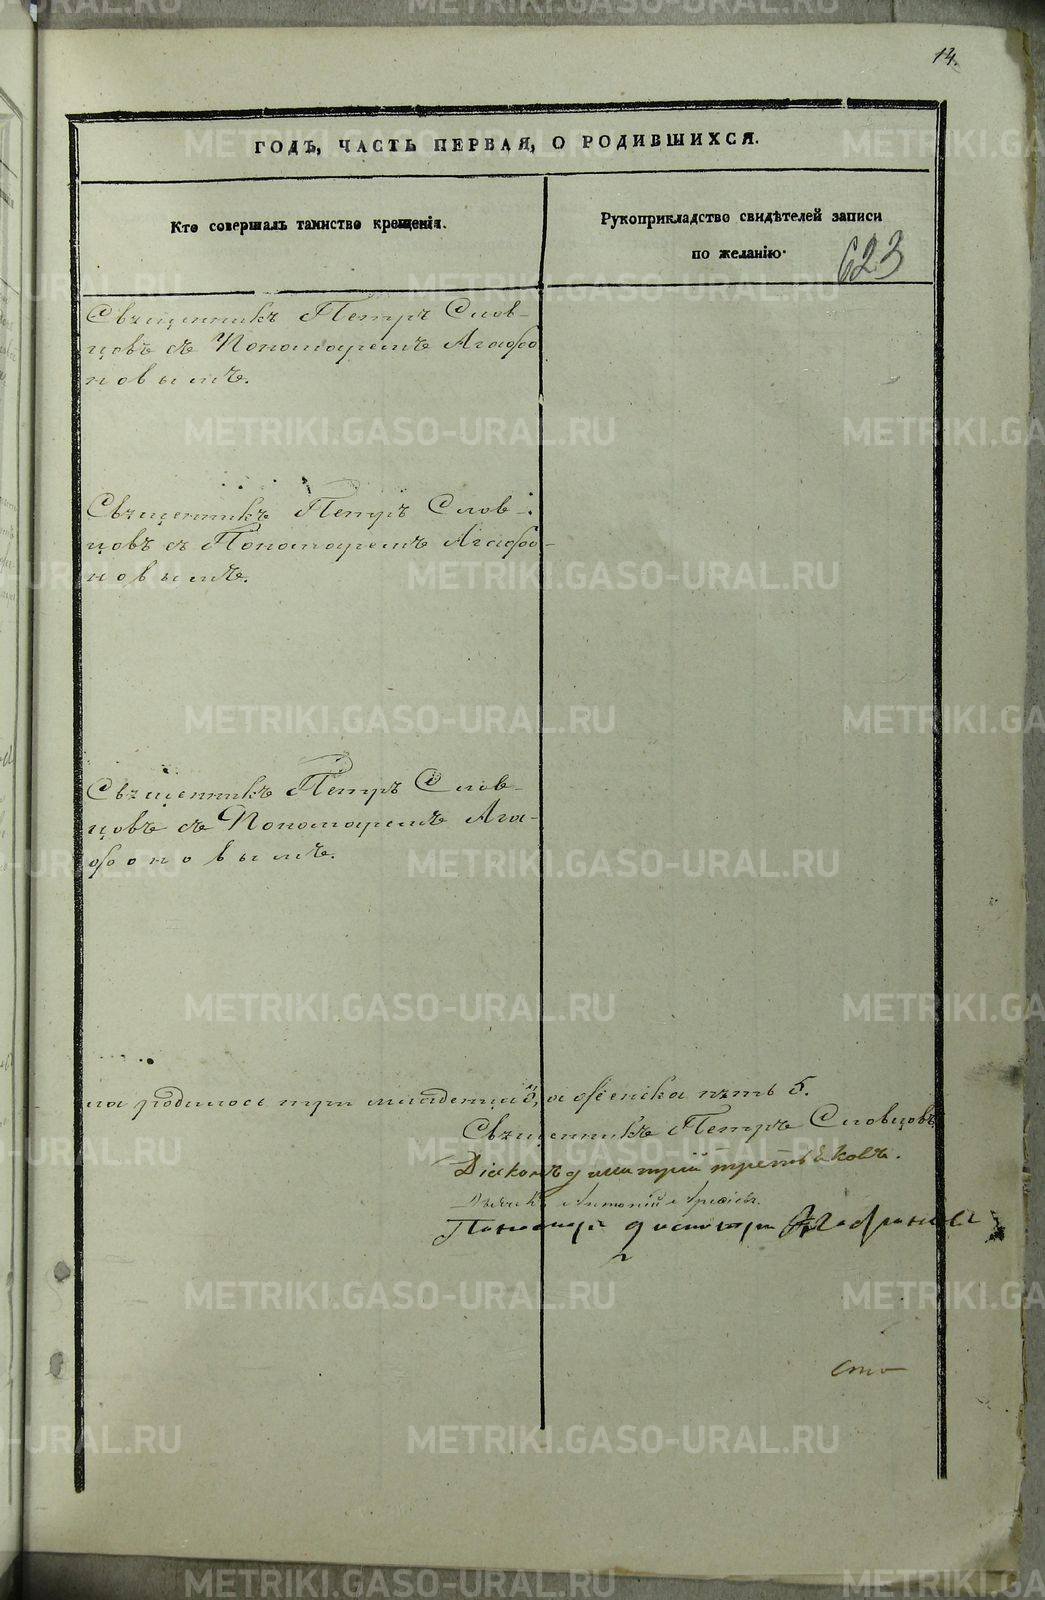 14.
ГОДЪ, ЧАСТЬ ПЕРВАЯ, О РОДИВШИХСЯ.
Кто совершалъ таинство крещенія.
Рукоприкладство свидѣтелей записи
по желанію.
623
Священникъ Петръ Слов-
цовъ съ Пономаремъ Агафо
новымъ.
Священникъ Петръ Слов-
цовъ съ Пономаремъ Агафо-
новымъ.
Священникъ Петръ Слов-
цовъ съ Пономаремъ Ага-
фоновымъ.
ла родилось три младенца 3, а женска пять 5.
Священникъ Петръ Словцовъ
Діаконъ Димитрій Третьяковъ.
Дьячекъ Антоній
Пономарь
METRIKI.GASO-URAL.RU